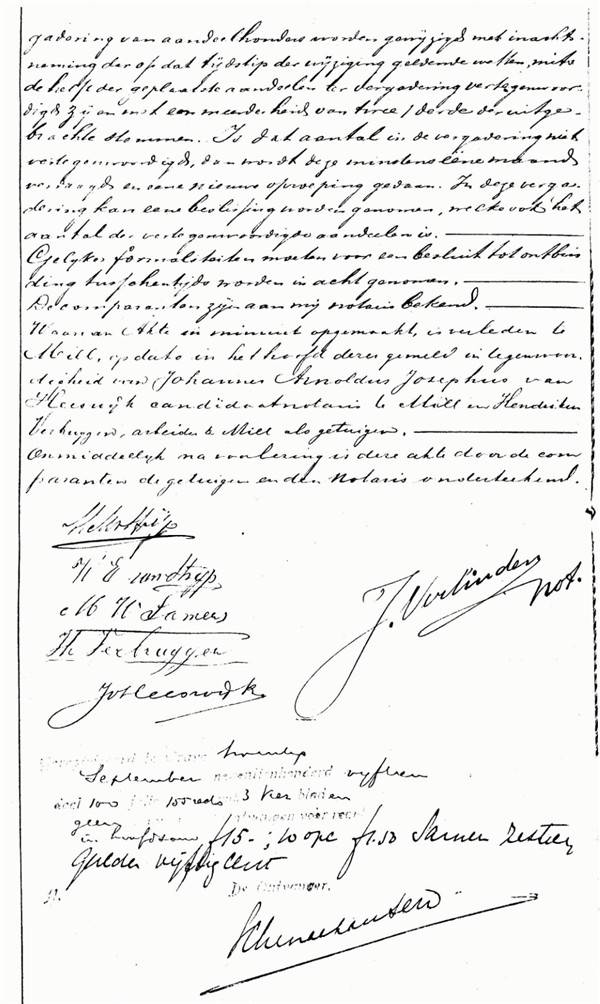 gadering van aandeelhouders worden gewijzigd met inacht-
neming der op dat tijdstip der wijziging geldende wetten, mits
de helft der geplaatste aandeelen ter vergadering vertegenwoor-
digd zijn en met een meerderheid van twee/derde der uitge-
brachte stemmen. Is dat aantal in de vergadering niet
vertegenwoordigd, dan wordt deze minstens eene maand
verdaagd en eene nieuwe oproeping gedaan. In deze verga-
dering kan eene beslissing worden genomen, welke ook het
aantal der vertegenwoordigde aandeelen is.
Gelijke formaliteiten moeten voor een besluit tot ontbin
ding tusschentijds worden in acht genomen.
De comparanten zijn aan mij notaris bekend.
Waarvan Akte in minuut opgemaakt, is verleden te
Mill, op dato in het hoofd dezes gemeld in tegenwoor-
digheid van Johannes Arnoldus Josephus van
Heeswijk candidaat notaris te Mill en Hendrikus
Verbruggen, arbeider te Mill als getuigen.
Onmiddellijk na voorlezing is deze akte door de com
paranten de getuigen en den Notaris onderteekend.
H E van
M H Lamers
J. Verlinden
not.
H Verbruggen
JvHeeswijk
Geregistreerd te Grave twintig
September negentienhonderd vijftien
deel 100 folio 100 vak 3 bladen
geen
in hoofdsom f15.-; 10 opc f1.50 Samen zestien
gulden vijftig cent
De Ontvanger.